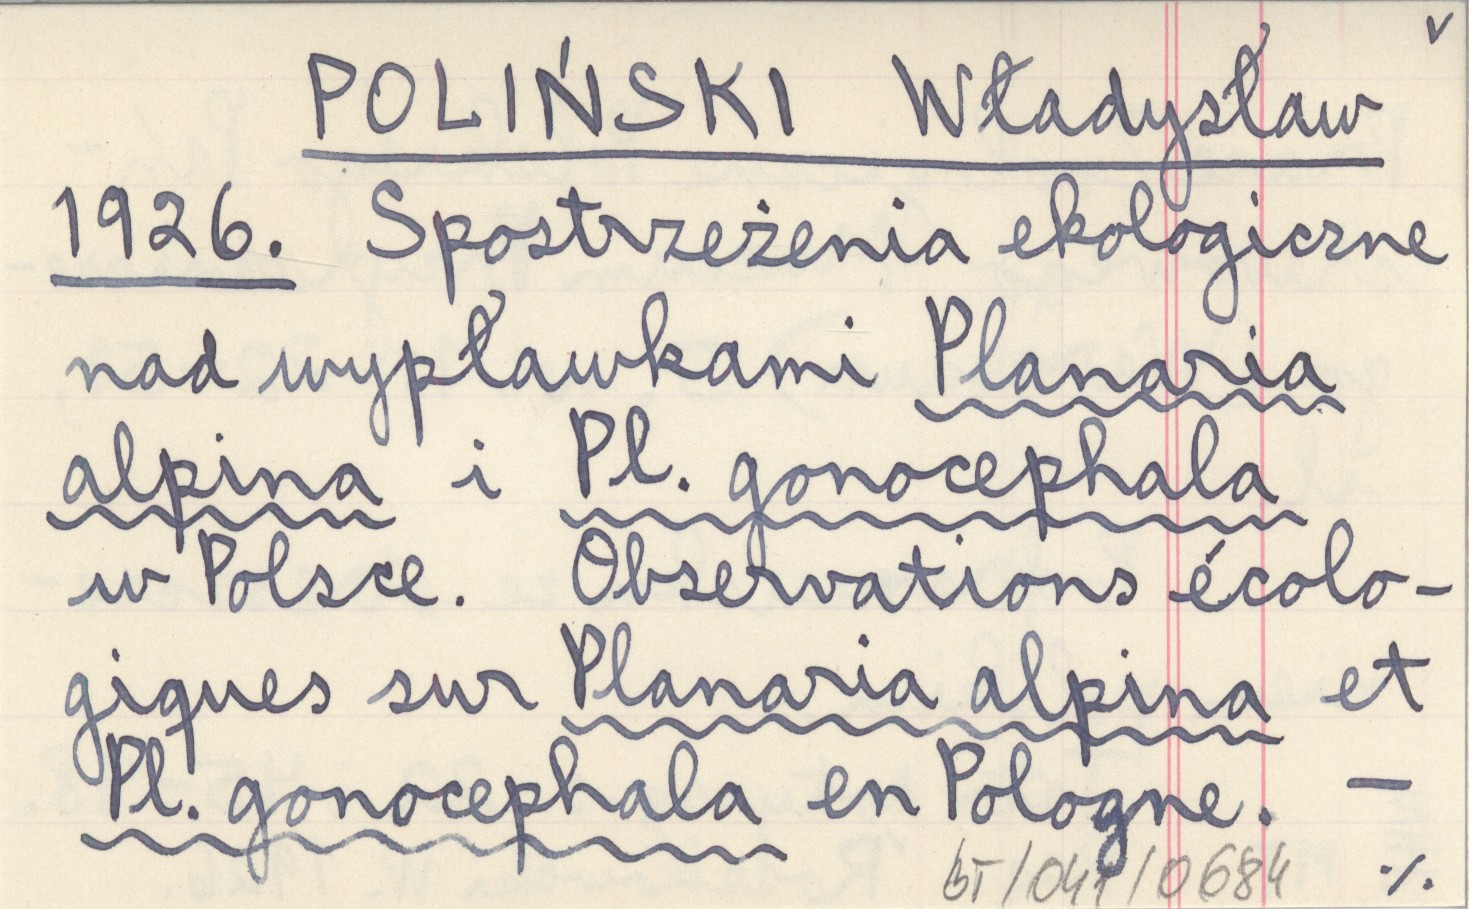 v
POLIŃSKI Władysław
1926. Spostrzeżenia ekologiczne
nad wypławkami Planaria
alpina i Pl. gonocephala
w Polsce. Observations écolo-
giques sur Planaria alpina et
Pl. gonocephala en Pologne. —
bT/041/0684 ./.